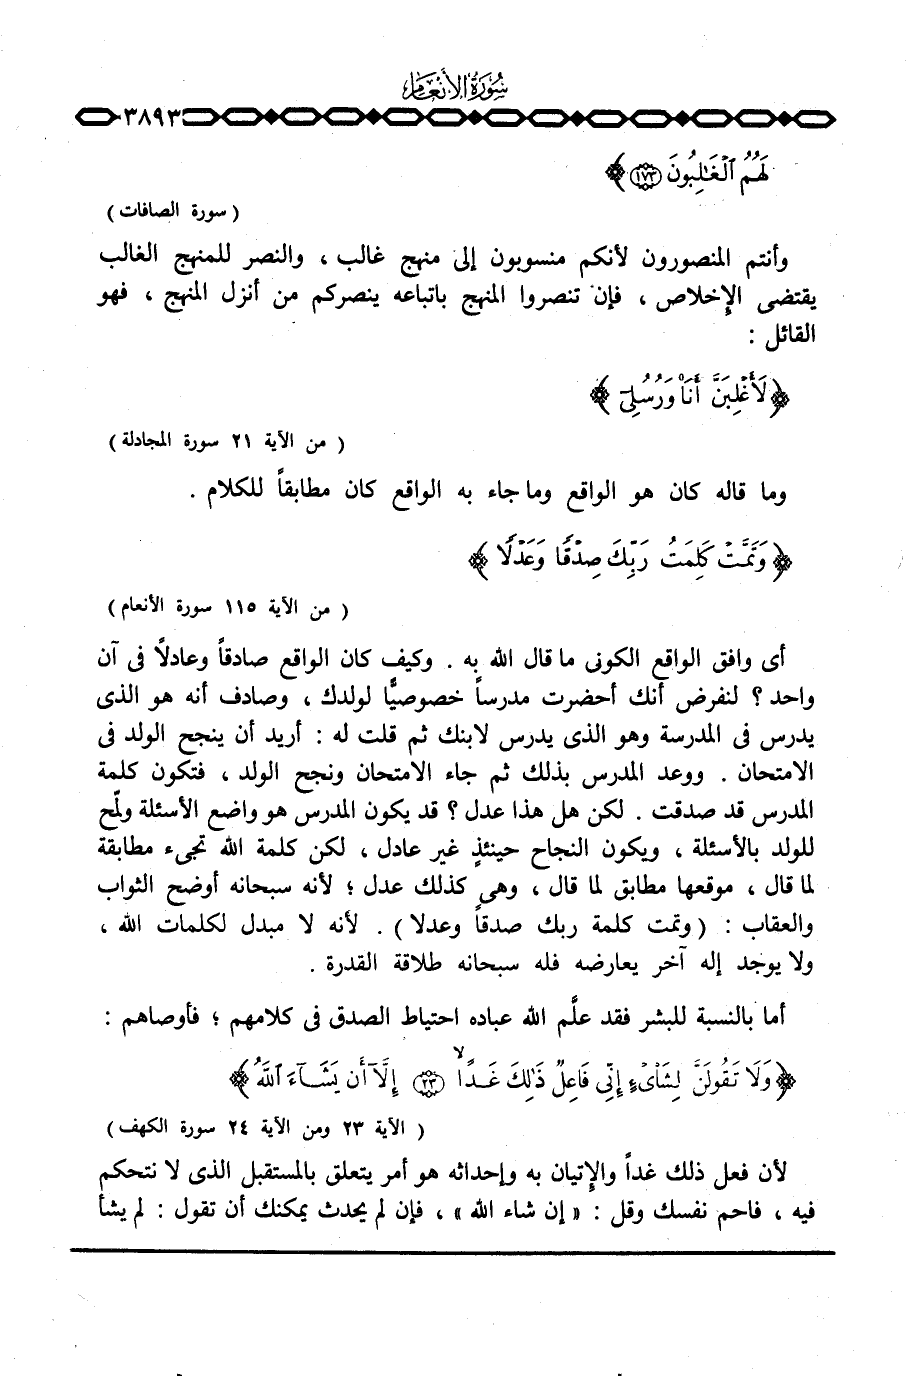 سُورَةُ الأَنْعَامِ
٣٨٩٣
لَهُمُ ٱلْغَٰلِبُونَ ﴿١٧٣﴾ ﴾
( سورة الصافات )
وأنتم المنصورون لأنكم منسوبون إلى منهج غالب ، والنصر للمنهج الغالب
يقتضى الإِخلاص ، فإن تنصروا المنهج باتباعه ينصركم من أنزل المنهج ، فهو
القائل :
﴿ لَأَغْلِبَنَّ أَنَا۠ وَرُسُلِىٓ ﴾
( من الآية ٢١ سورة المجادلة )
وما قاله كان هو الواقع وما جاء به الواقع كان مطابقاً للكلام .
﴿ وَتَمَّتْ كَلِمَتُ رَبِّكَ صِدْقًا وَعَدْلًا ﴾
( من الآية ١١٥ سورة الأنعام )
أى وافق الواقع الكونى ما قال الله به . وكيف كان الواقع صادقاً وعادلاً فى آن
واحد ؟ لنفرض أنك أحضرت مدرساً خصوصيًّا لولدك ، وصادف أنه هو الذى
يدرس فى المدرسة وهو الذى يدرس لابنك ثم قلت له : أريد أن ينجح الولد فى
الامتحان . ووعد المدرس بذلك ثم جاء الامتحان ونجح الولد ، فتكون كلمة
المدرس قد صدقت . لكن هل هذا عدل ؟ قد يكون المدرس هو واضع الأسئلة ولمّح
للولد بالأسئلة ، ويكون النجاح حينئذٍ غير عادل ، لكن كلمة الله تجىء مطابقة
لما قال ، موقعها مطابق لما قال ، وهى كذلك عدل ؛ لأنه سبحانه أوضح الثواب
والعقاب : ( وتمت كلمة ربك صدقاً وعدلا ) . لأنه لا مبدل لكلمات الله ،
ولا يوجد إله آخر يعارضه فله سبحانه طلاقة القدرة .
أما بالنسبة للبشر فقد علَّم الله عباده احتياط الصدق فى كلامهم ؛ فأوصاهم :
﴿ وَلَا تَقُولَنَّ لِشَا۟ىْءٍ إِنِّى فَاعِلٌ ذَٰلِكَ غَدًاۙ ﴿٢٣﴾ إِلَّآ أَن يَشَآءَ ٱللَّهُ ﴾
( الآية ٢٣ ومن الآية ٢٤ سورة الكهف )
لأن فعل ذلك غداً والإِتيان به وإحداثه هو أمر يتعلق بالمستقبل الذى لا نتحكم
فيه ، فاحم نفسك وقل : « إن شاء الله » ، فإن لم يحدث يمكنك أن تقول : لم يشأ